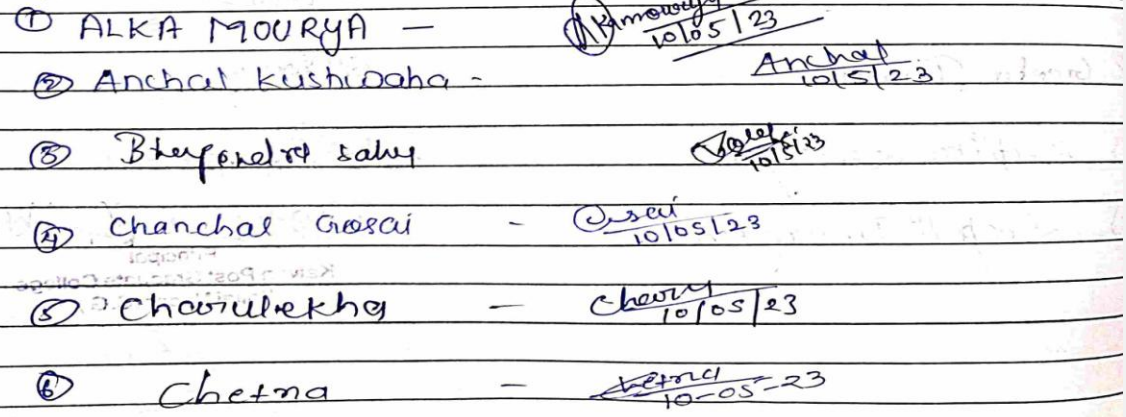 ① ALKA MOURYA - Akmourya 10/05/23
② Anchal Kushwaha - Anchal 10/5/23
③ Bhupendra sahu 10/5/23
④ Chanchal Gosai - Gosai 10/05/23
⑤ Charulekha - Charu 10/05/23
⑥ Chetna - Chetna 10-05-23